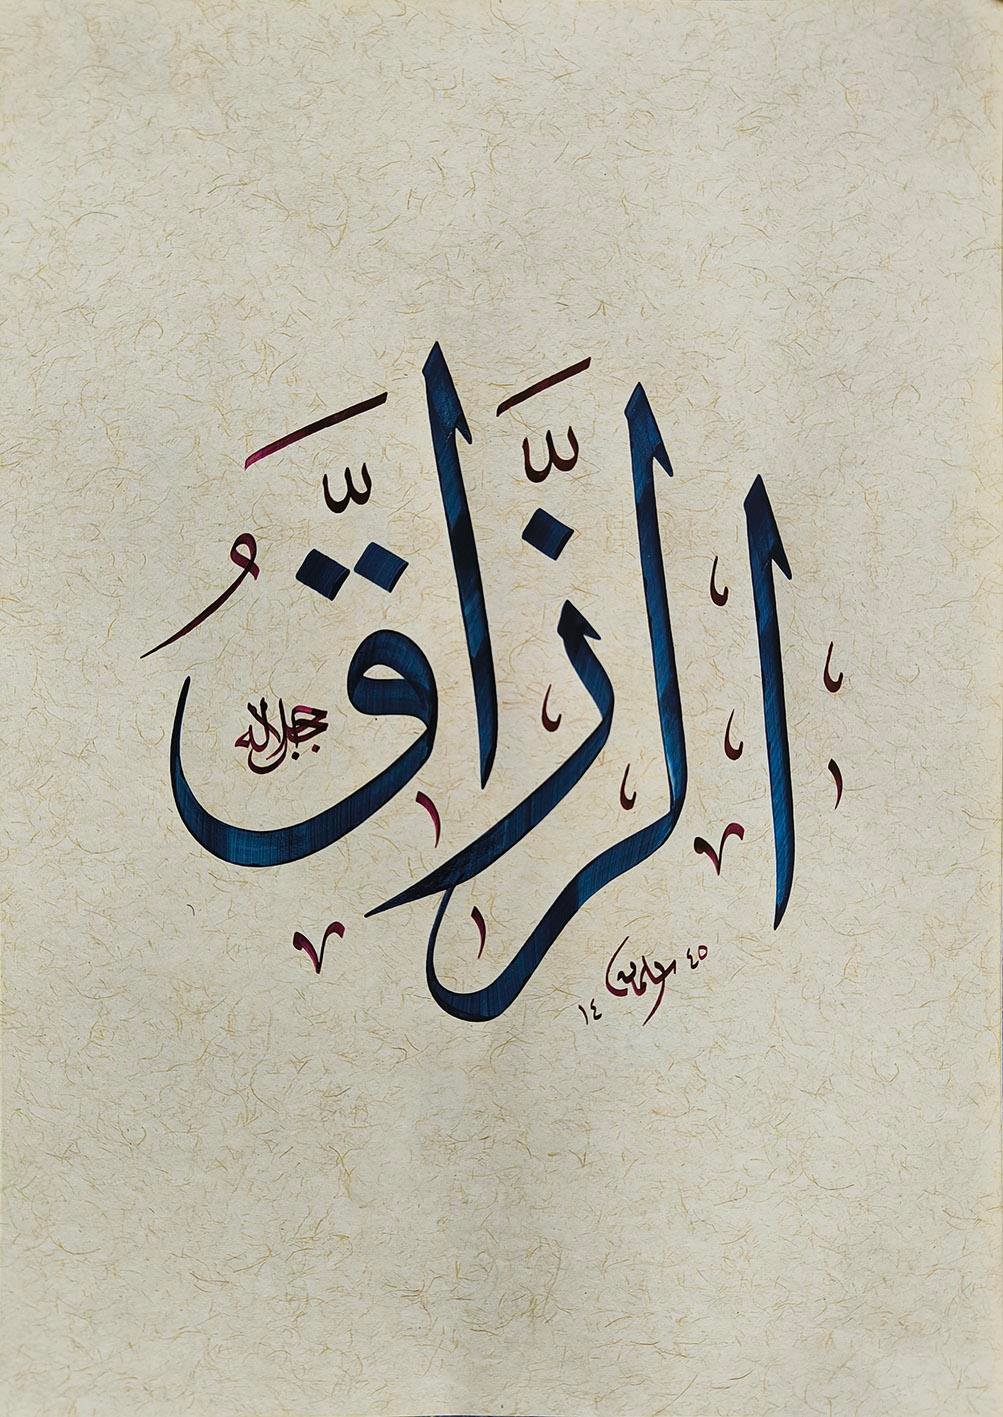 الرزاقُ
جل جلاله
١٤ ٤٥